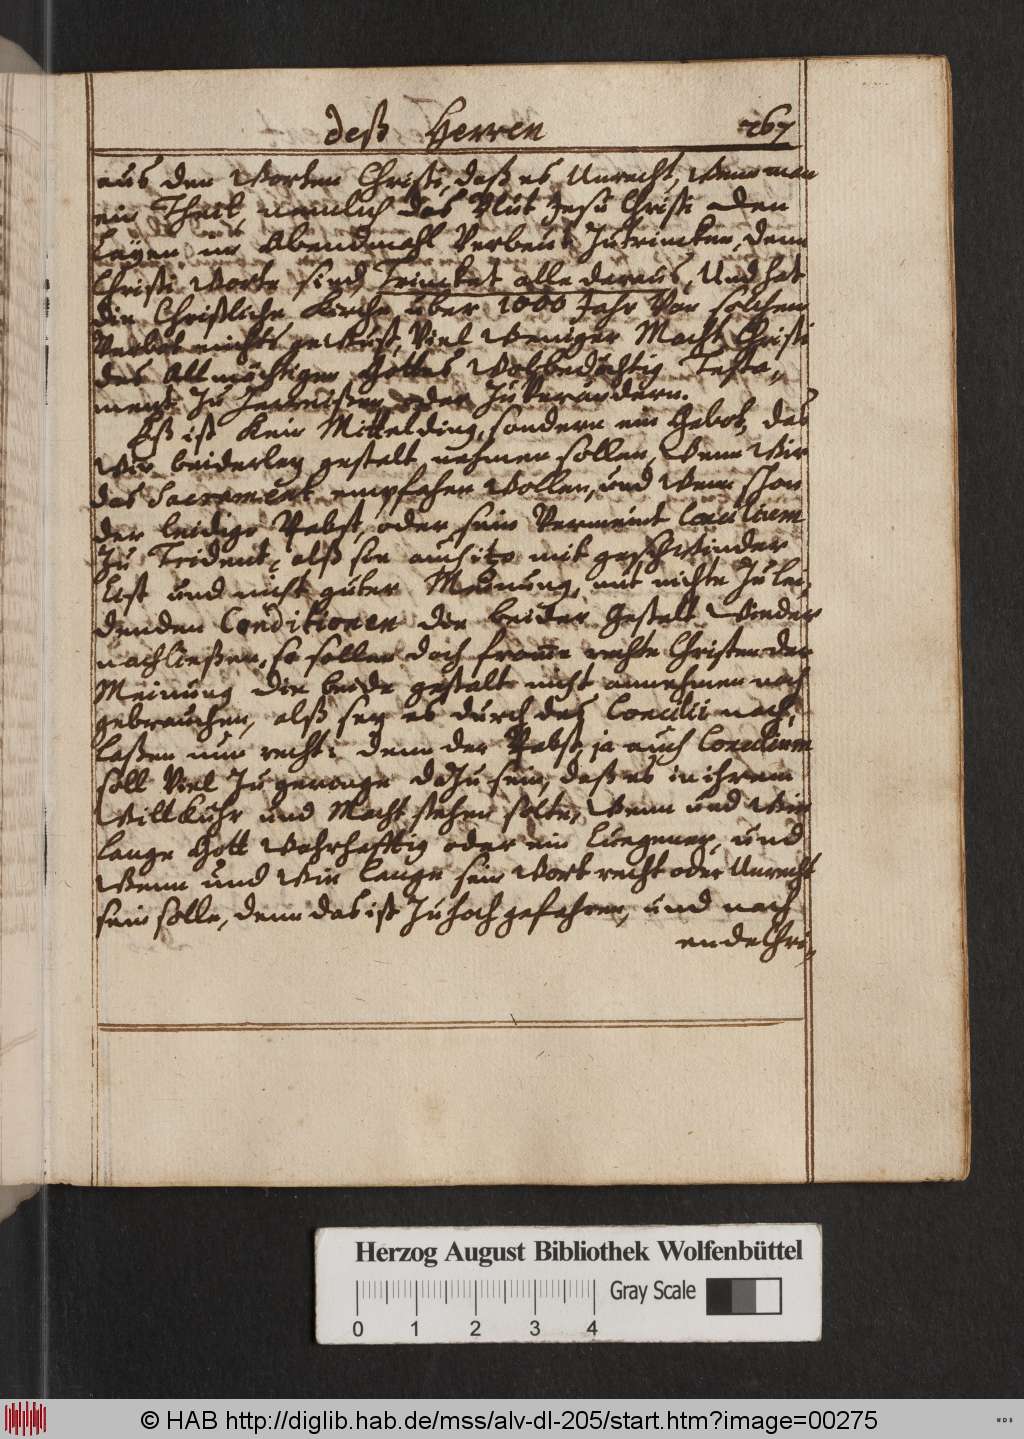 deß Herren 267
aus den Worten Christi, daß es Unrecht, Wenn man
ein Theil, nemlich das Blut Jesu Christi den
Layen im Abendmahl Verbeut Zutrincken, denn
Christi Worte sind, Trincket alle daraus, Und hat
die Christliche Kirche uber 1000 Jahr Von solchem
Verbot nichts gewust, Viel Weniger Macht Christi
des Allmächtigen Gottes Wolbedächtig Testa-
ment Zu Zerreißen oder Zu Verändern.
Eß ist Kein Mittelding, sondern ein Gebot, das
Wir beiderley gestalt nehmen sollen, Wenn Wir
das Sacrament empfahen Wollen, und Wenn schon
der leidige Pabst, oder sein Vermeint Concilium
Zu Trident, alß sie auch itzo mit geschwinder
list und nicht guter Meinung, mit nichte Zu lei-
denden Conditionen die beider Gestalt Wieder
nachließen, so sollen doch from̄e rechte Christen der
Meinung die beide gestalt nicht annehmen noch
gebrauchen, alß sey es durch des Concilii nach-
laßen nun recht: denn der Pabst, ja auch Concilium
soll Viel Zu geringe daZu sein, daß es in ihrem
Willkuhr und Macht stehen solte, Wenn und Wie
lange Gott Wahrhafftig oder ein luegener, und
Wenn und Wie lange sein Wort recht oder Unrecht
sein solle, denn das ist Zu hoch gefahren, und nach
endeChri-
Herzog August Bibliothek Wolfenbüttel
Gray Scale
0 1 2 3 4
© HAB http://diglib.hab.de/mss/alv-dl-205/start.htm?image=00275